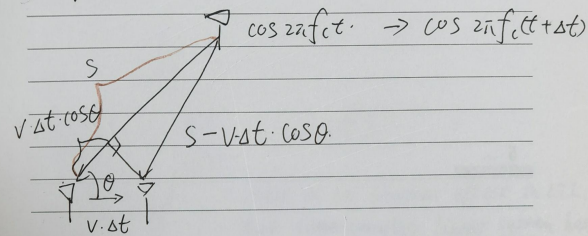 cos 2πf_c t. → cos 2πf_c(t+Δt)
S
V·Δt·cosθ
S-V·Δt·cosθ.
θ
V·Δt